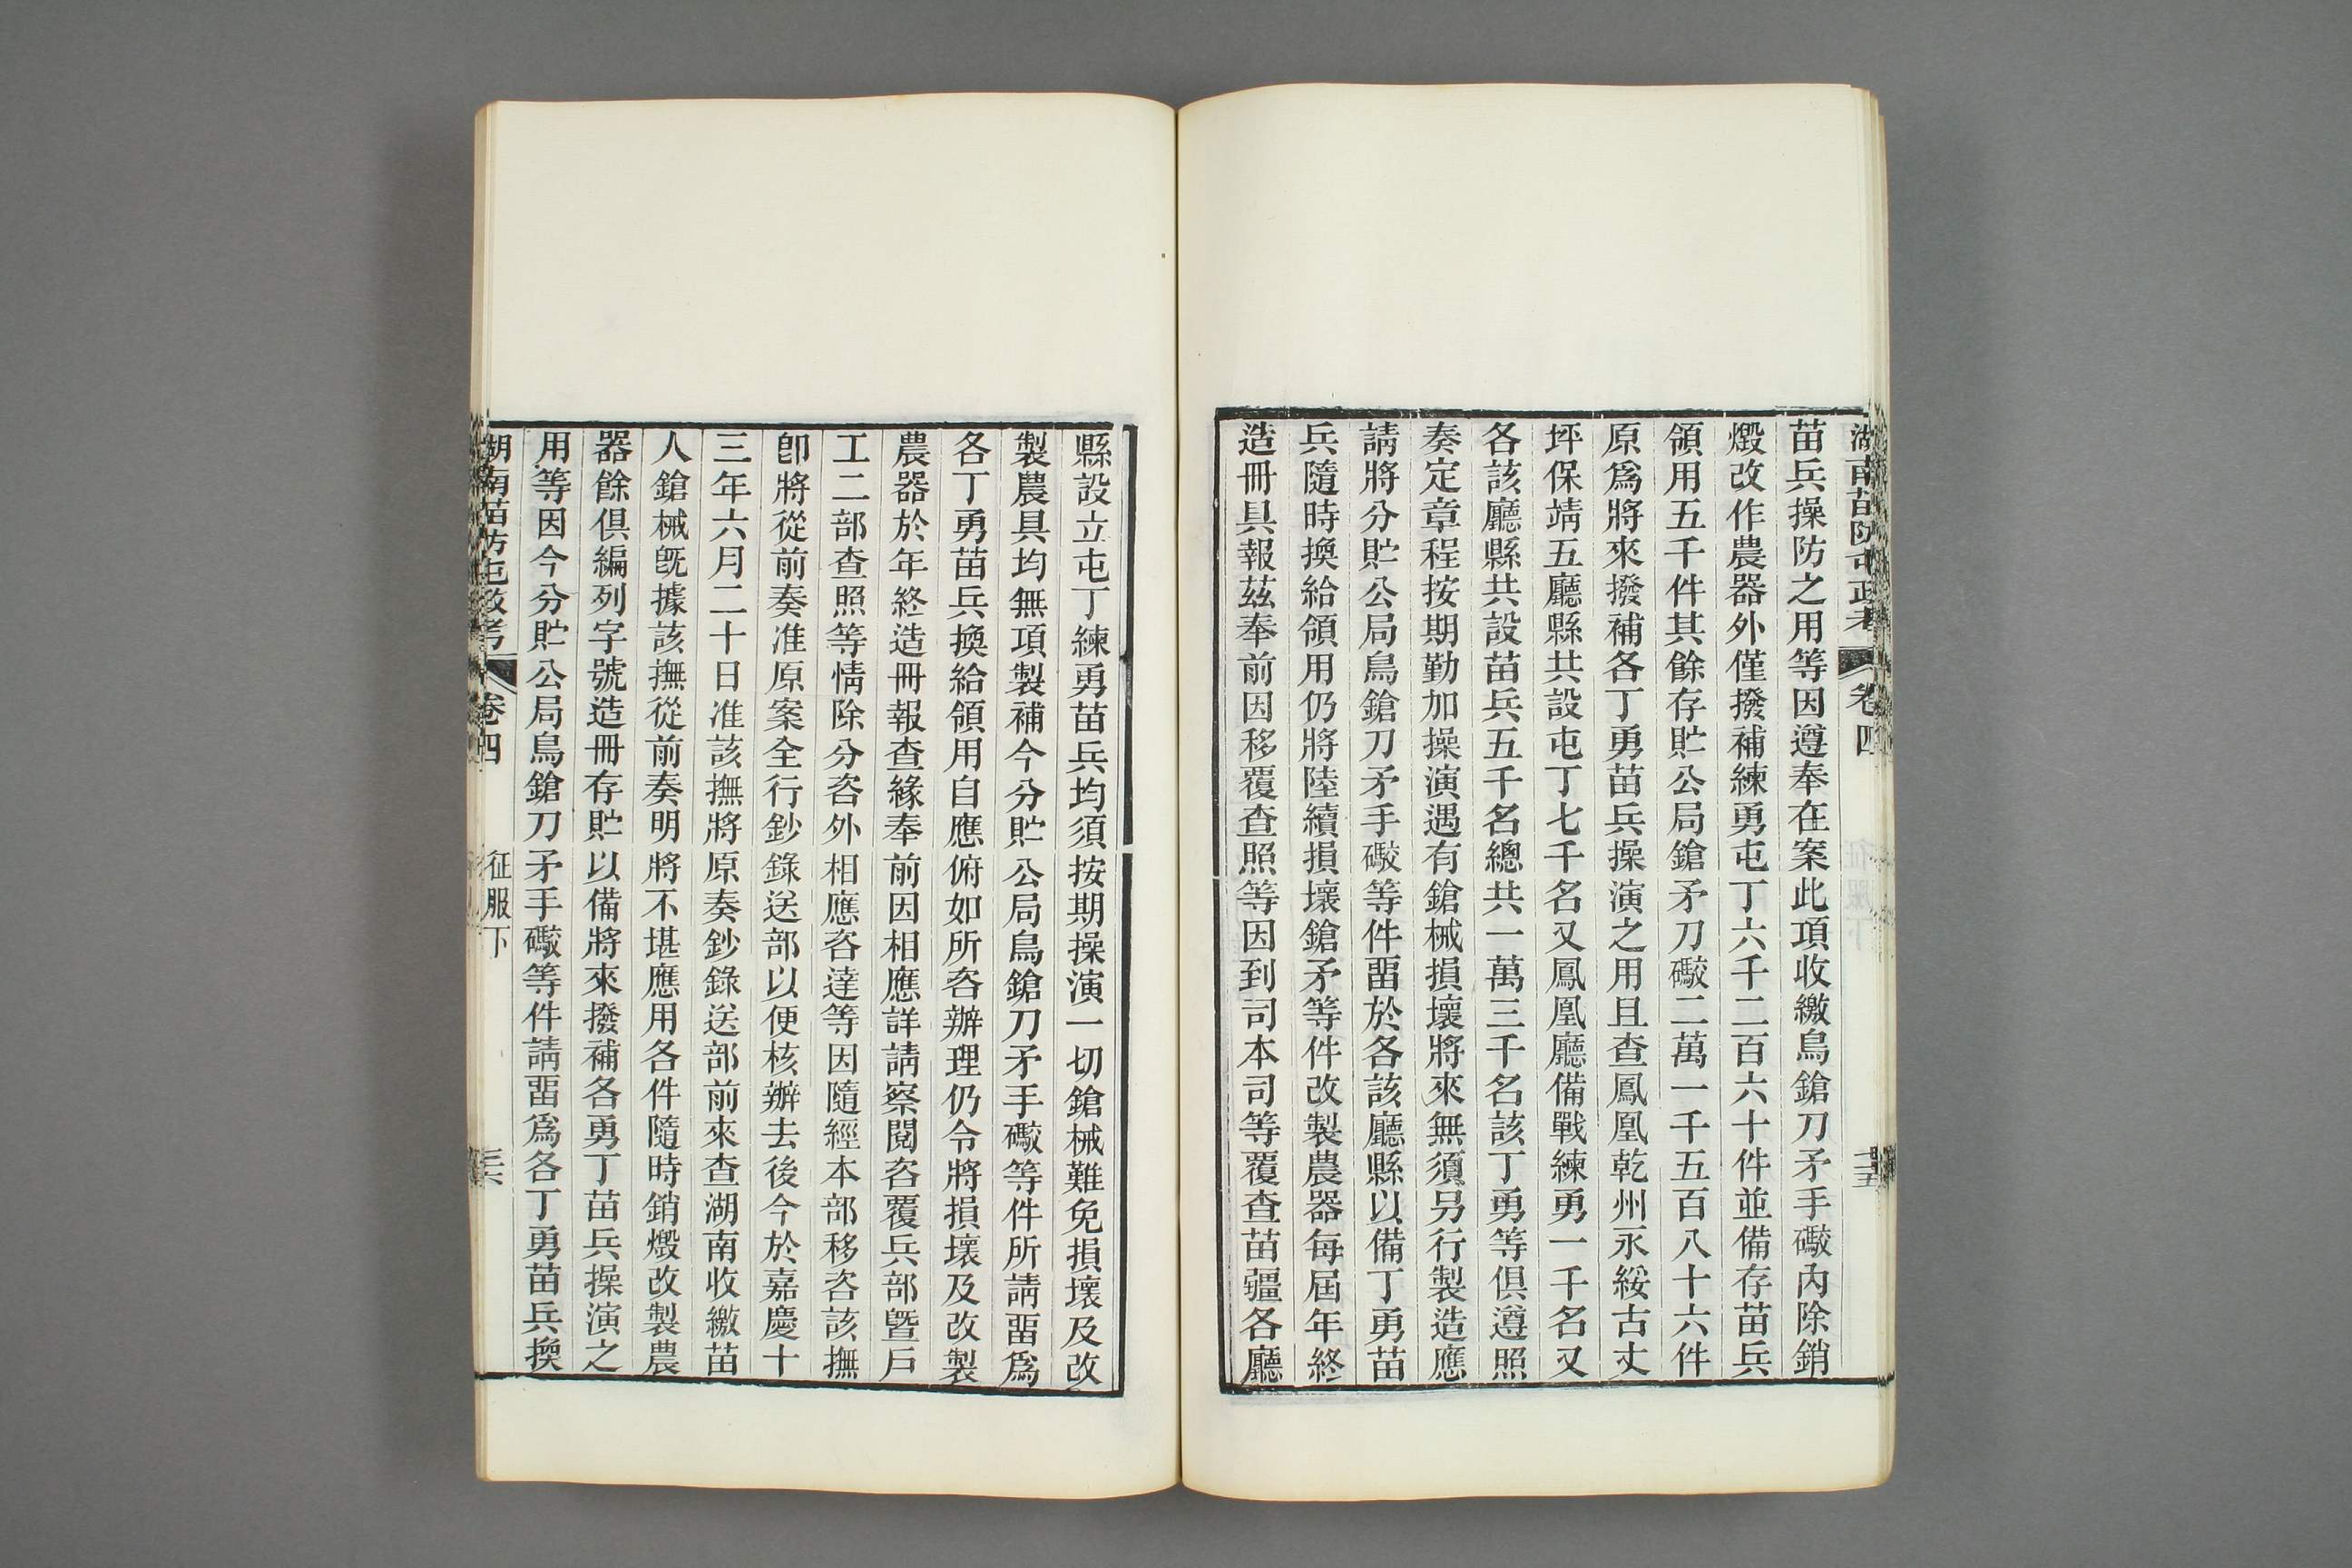 湖南苗防屯政考 卷四
苗兵操防之用等因遵奉在案此項收繳鳥鎗刀矛手礮內除銷
燬改作農器外僅撥補練勇屯丁六千二百六十件並備存苗兵
領用五千件其餘存貯公局鎗矛刀礮二萬一千五百八十六件
原爲將來撥補各丁勇苗兵操演之用且查鳳凰乾州永綏古丈
坪保靖五廳縣共設屯丁七千名又鳳凰廳備戰練勇一千名又
各該廳縣共設苗兵五千名總共一萬三千名該丁勇等俱遵照
奏定章程按期勤加操演遇有鎗械損壞將來無須另行製造應
請將分貯公局鳥鎗刀矛手礮等件畱於各該廳縣以備丁勇苗
兵隨時換給領用仍將陸續損壞鎗矛等件改製農器每屆年終
造冊具報茲奉前因移覆查照等因到司本司等覆查苗疆各廳
縣設立屯丁練勇苗兵均須按期操演一切鎗械難免損壞及改
製農具均無項製補今分貯公局鳥鎗刀矛手礮等件所請畱爲
各丁勇苗兵換給領用自應俯如所咨辦理仍令將損壞及改製
農器於年終造冊報查緣奉前因相應詳請察閱咨覆兵部曁戶
工二部查照等情除分咨外相應咨達等因隨經本部移咨該撫
卽將從前奏准原案全行鈔錄送部以便核辦去後今於嘉慶十
三年六月二十日准該撫將原奏鈔錄送部前來查湖南收繳苗
人鎗械旣據該撫從前奏明將不堪應用各件隨時銷燬改製農
器餘俱編列字號造冊存貯以備將來撥補各勇丁苗兵操演之
用等因今分貯公局鳥鎗刀矛手礮等件請畱爲各丁勇苗兵換
湖南苗防屯政考 卷四 征服下